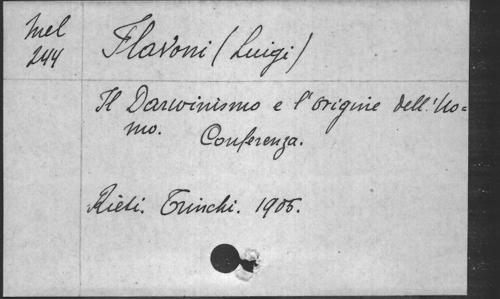 Mel
244
Flavoni (Luigi)
Il Darwinismo e l'origine dell'Uo=
mo. Conferenza.
Rieti. Trinchi. 1905.